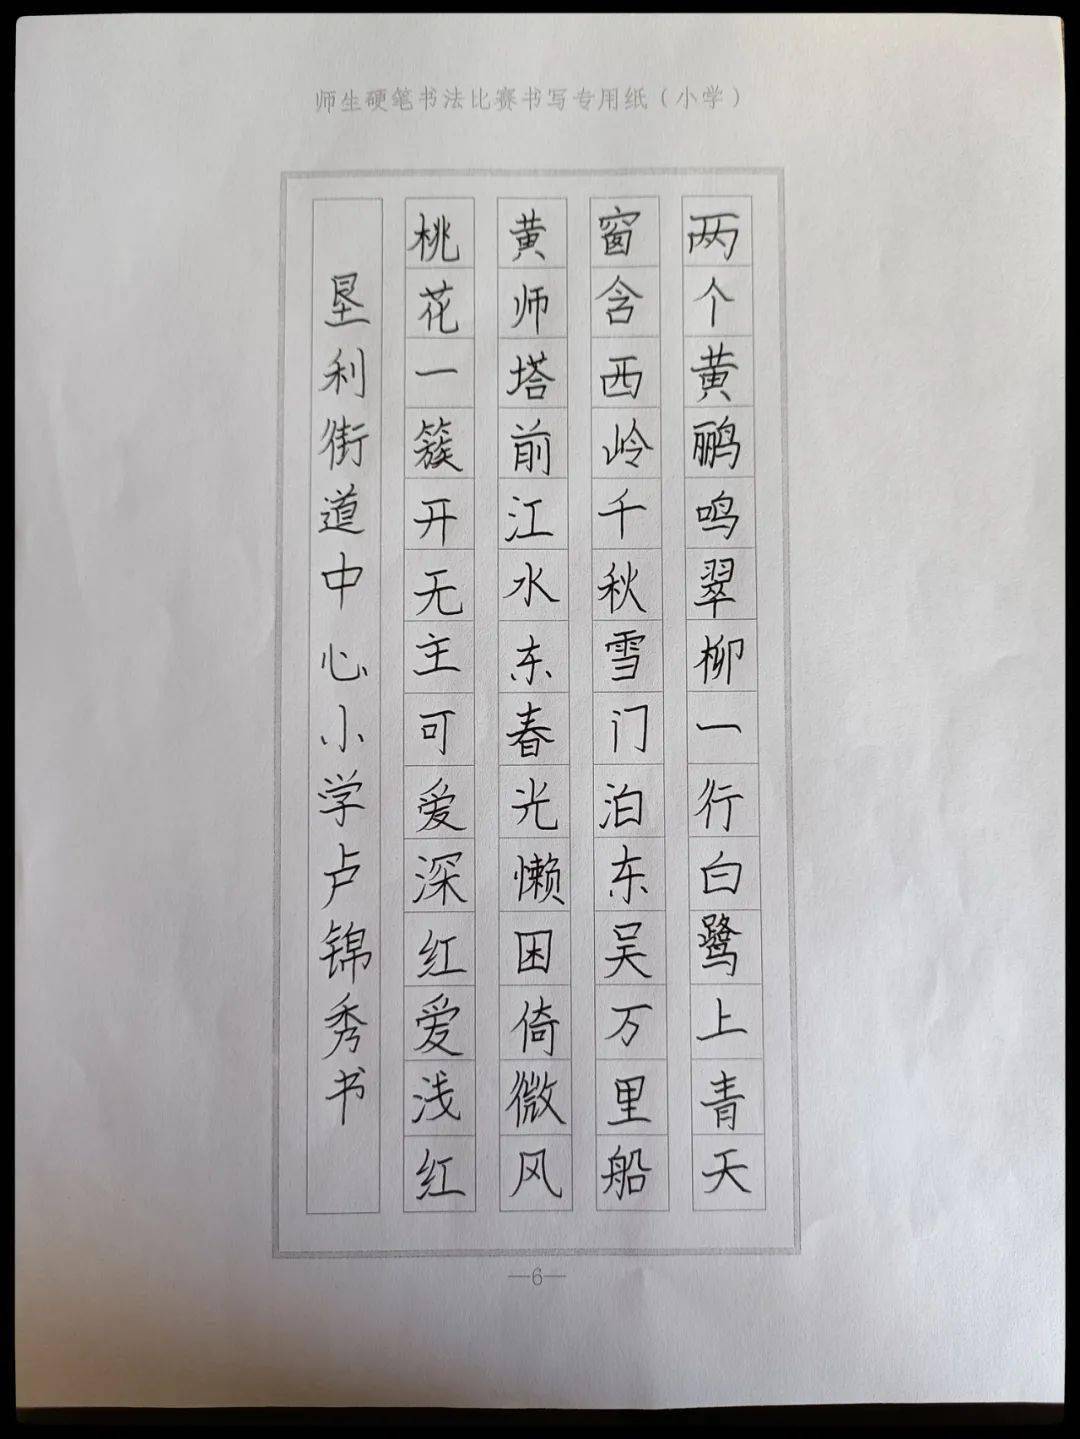 师生硬笔书法比赛书写专用纸（小学）
两个黄鹂鸣翠柳一行白鹭上青天
窗含西岭千秋雪门泊东吴万里船
黄师塔前江水东春光懒困倚微风
桃花一簇开无主可爱深红爱浅红
垦利街道中心小学卢锦秀书
—6—